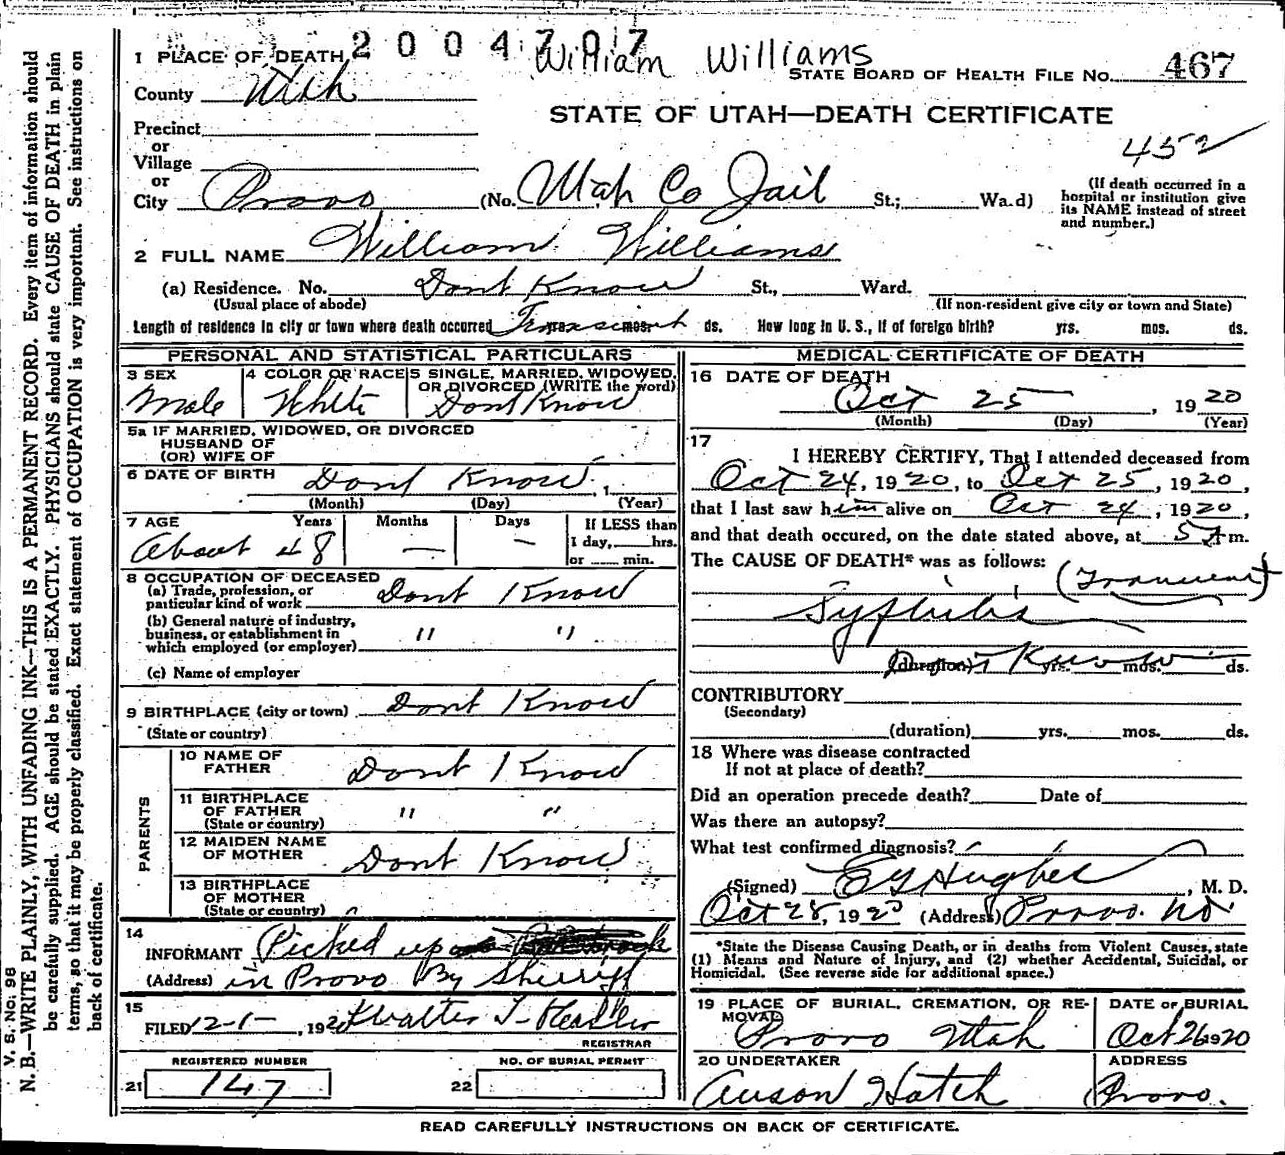 2004707
William Williams
1 PLACE OF DEATH
STATE BOARD OF HEALTH FILE No. 467
County Utah
STATE OF UTAH—DEATH CERTIFICATE
Precinct
or
452
Village
or
City Provo (No. Utah Co Jail St.; Wa.d)
(If death occurred in a
hospital or institution give
its NAME instead of street
and number.)
2 FULL NAME William Williams
(a) Residence. No. Dont Know St., Ward.
(Usual place of abode)
(If non-resident give city or town and State)
Length of residence in city or town where death occurred Transient yrs. mos. ds. How long in U. S., if of foreign birth? yrs. mos. ds.
PERSONAL AND STATISTICAL PARTICULARS
3 SEX
Male
4 COLOR OR RACE
White
5 SINGLE, MARRIED, WIDOWED,
OR DIVORCED (WRITE the word)
Dont Know
5a IF MARRIED, WIDOWED, OR DIVORCED
HUSBAND OF
(OR) WIFE OF
6 DATE OF BIRTH Dont Know,
(Month) (Day) (Year)
7 AGE Years Months Days
About 48 — —
If LESS than
1 day, hrs.
or min.
8 OCCUPATION OF DECEASED
(a) Trade, profession, or
particular kind of work Dont Know
(b) General nature of industry,
business, or establishment in
which employed (or employer) " "
(c) Name of employer
9 BIRTHPLACE (city or town) Dont Know
(State or country)
PARENTS
10 NAME OF
FATHER Dont Know
11 BIRTHPLACE
OF FATHER " "
(State or country)
12 MAIDEN NAME
OF MOTHER Dont Know
13 BIRTHPLACE
OF MOTHER
(State or country) "
14
INFORMANT Picked up
(Address) in Provo By Sherriff
15
FILED 12-1-, 1920 Walter T
REGISTRAR
REGISTERED NUMBER
21 147
NO. OF BURIAL PERMIT
22
MEDICAL CERTIFICATE OF DEATH
16 DATE OF DEATH
Oct 25, 1920
(Month) (Day) (Year)
17
I HEREBY CERTIFY, That I attended deceased from
Oct 24, 1920, to Oct 25, 1920,
that I last saw him alive on Oct 24, 1920,
and that death occured, on the date stated above, at 5 A m.
The CAUSE OF DEATH* was as follows: (Transient)
Syphilis
(duration) Dont Know yrs. mos. ds.
CONTRIBUTORY
(Secondary)
(duration) yrs. mos. ds.
18 Where was disease contracted
If not at place of death?
Did an operation precede death? Date of
Was there an autopsy?
What test confirmed diagnosis?
(Signed) Hughes, M. D.
Oct 28, 1920 (Address) Provo.
*State the Disease Causing Death, or in deaths from Violent Causes, state
(1) Means and Nature of Injury, and (2) whether Accidental, Suicidal, or
Homicidal. (See reverse side for additional space.)
19 PLACE OF BURIAL, CREMATION, OR RE-
MOVAL
Provo Utah
DATE OF BURIAL
Oct 26 1920
20 UNDERTAKER
Anson Hatch
ADDRESS
Provo.
READ CAREFULLY INSTRUCTIONS ON BACK OF CERTIFICATE.
V. S. No. 98
N. B.—WRITE PLAINLY, WITH UNFADING INK—THIS IS A PERMANENT RECORD. Every item of information should
be carefully supplied. AGE should be stated EXACTLY. PHYSICIANS should state CAUSE OF DEATH in plain
terms, so that it may be properly classified. Exact statement of OCCUPATION is very important. See instructions on
back of certificate.